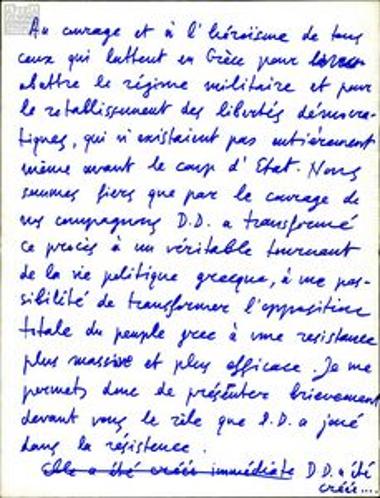 Au courage et à l'héroïsme de tous
ceux qui luttent en Grèce pour
abattre le régime militaire et pour
le retablissement des libertés démocra-
tiques, qui n'existaient pas entièrement
même avant le coup d'Etat. Nous
sommes fiers que par le courage de
nos compagnons D.D. a transformé
ce procès à un véritable tournant
de la vie politique grecque, à une pos-
sibilité de transformer l'opposition
totale du peuple grec à une resistance
plus massive et plus efficace. Je me
permets donc de présenter brievement
devant vous le rôle que D.D. a joué
dans la résistence.
Elle a été créée immédiate D.D. a été
créée...